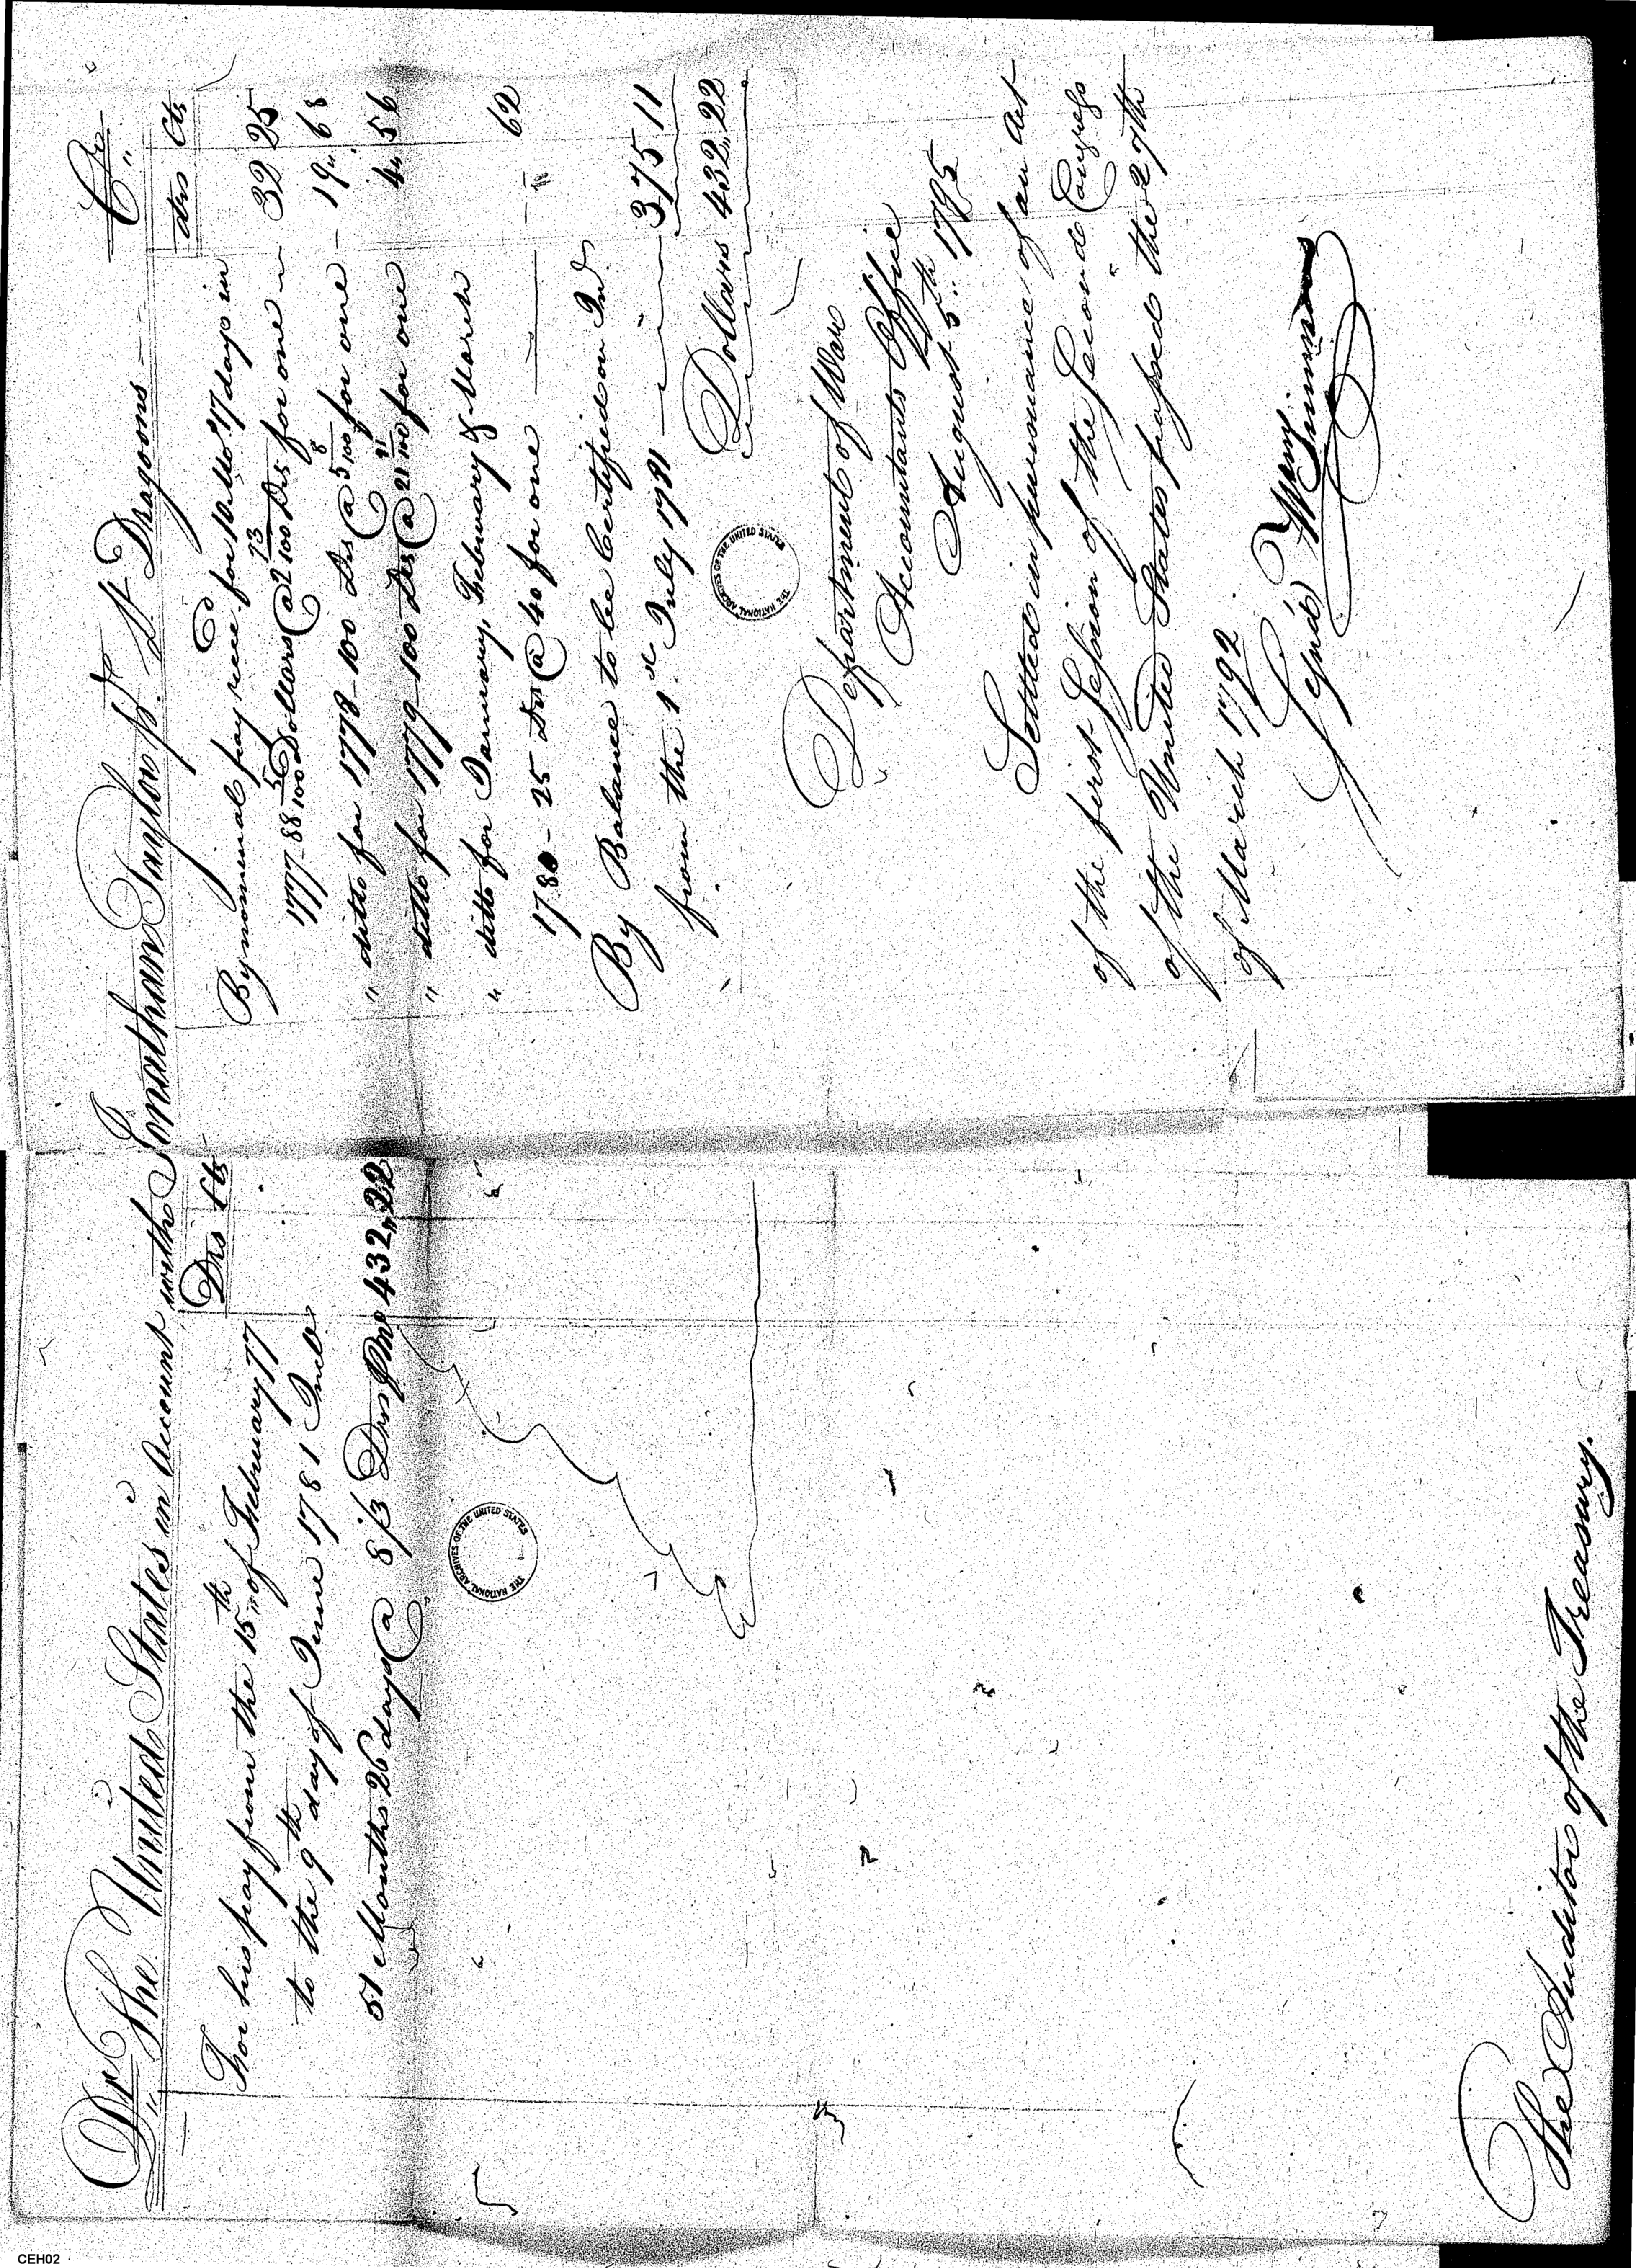 Dr The United States in Account with Jonathan Taylor pt. Lt Dragoons Cr
Drs Cts
For his pay from the 15th of February 77
to the 9th day of June 1781 Incle
51 Months 26 days @ 8 1/3 Drs pm 432,,22
drs Cts
By nominal pay recd for 10 Mo 17 days in
1777 - 88 5/100 Dollars @ 2 73/100 Drs for one 32 25
" ditto for 1778 - 100 Drs @ 5 8/100 for one 19,, 68
" ditto for 1779 - 100 Drs @ 21 91/100 for one 4,, 56
" ditto for January, February & March
1780 - 25 Drs @ 40 for one 62
By Balance to be Certified on Int
from the 1st July 1781 375 11
Dollars 432,,22
THE NATIONAL ARCHIVES OF THE UNITED STATES
THE NATIONAL ARCHIVES OF THE UNITED STATES
Department of War
Accountants Office
August 5th 1795
Settled in pursuance of an Act
of the first Session of the Second Congress
of the United States passed the 27th
of March 1792
Signd Wm Simmons
The Auditor of the Treasury.
CEH02